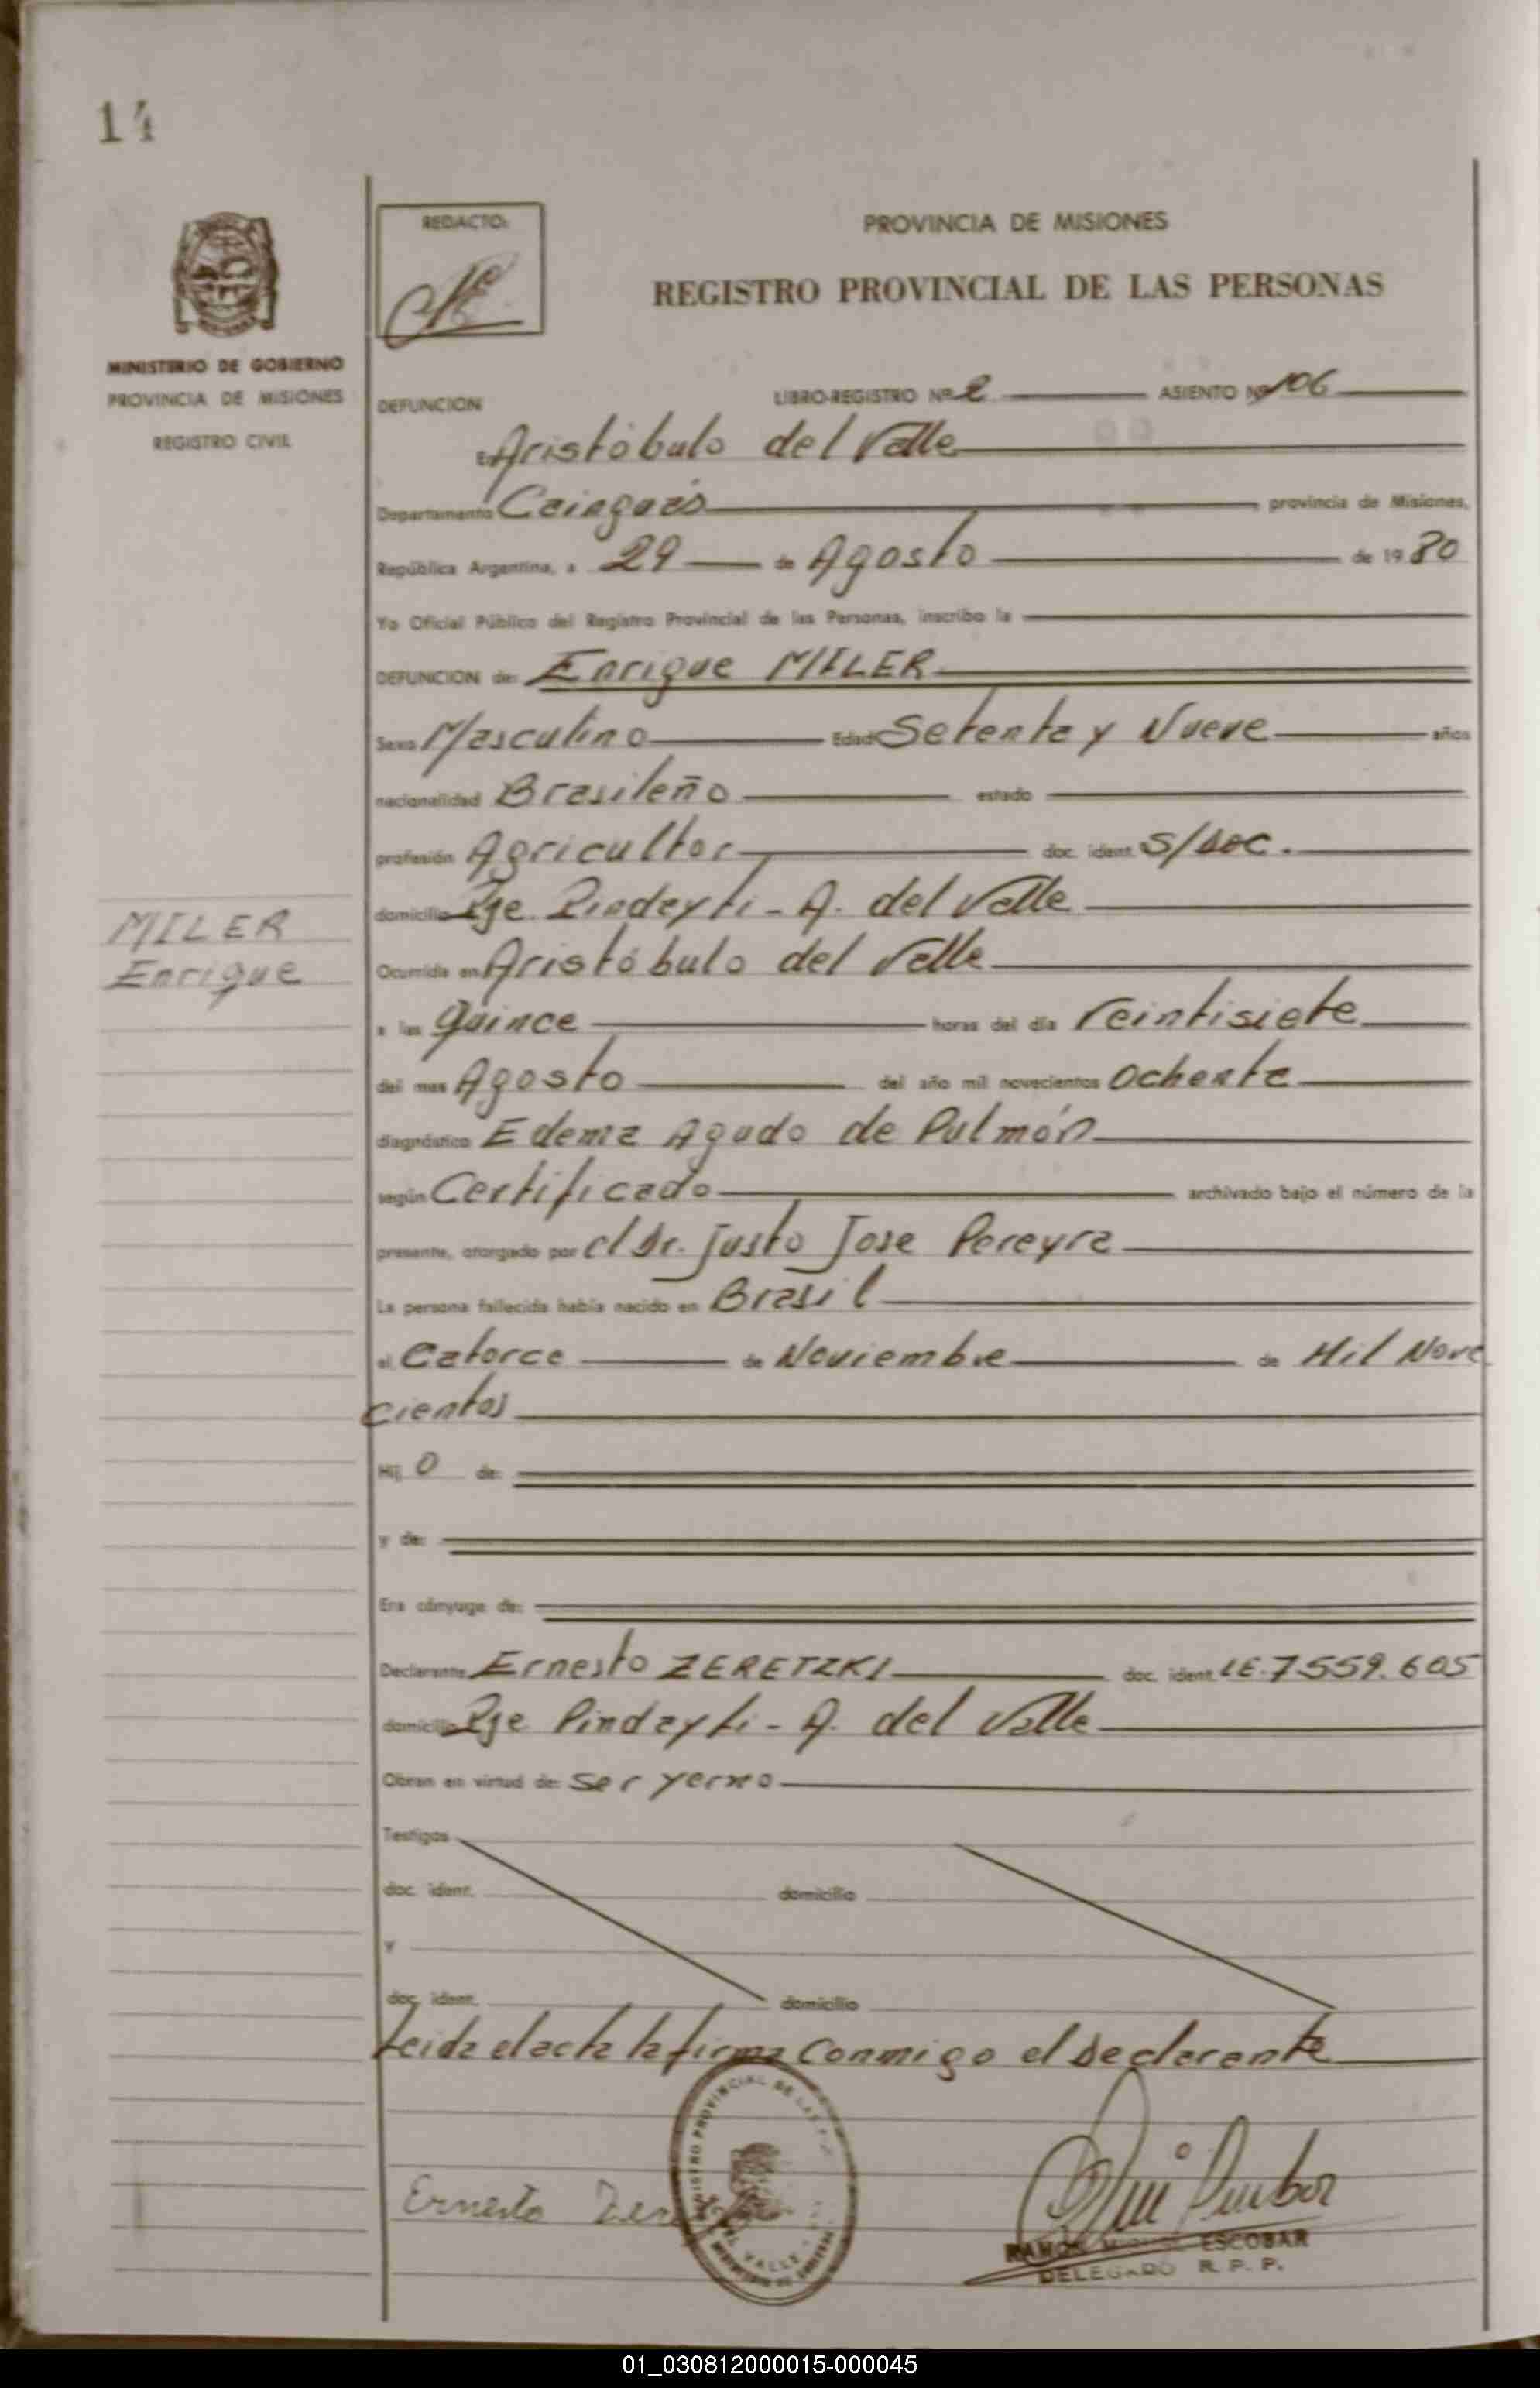 14
REDACTO:
PROVINCIA DE MISIONES
REGISTRO PROVINCIAL DE LAS PERSONAS
MINISTERIO DE GOBIERNO
PROVINCIA DE MISIONES
REGISTRO CIVIL
DEFUNCION LIBRO-REGISTRO Nº 2 ASIENTO Nº 106
En Aristóbulo del Valle
Departamento Cainguás provincia de Misiones,
República Argentina, a 29 de Agosto de 1980
Yo Oficial Público del Registro Provincial de las Personas, inscribo la
DEFUNCION de: Enrique MILER
Sexo Masculino Edad Setenta y Nueve años
nacionalidad Brasileño estado
profesión Agricultor doc. ident. S/doc.
domicilio Pje. Pindayti - A. del Valle
MILER
Enrique
Ocurrida en Aristóbulo del Valle
a las quince horas del día Veintisiete
del mes Agosto del año mil novecientos Ochenta
diagnóstico Edema Agudo de Pulmón
según Certificado archivado bajo el número de la
presente, otorgado por el Dr. Justo Jose Pereyra
La persona fallecida había nacido en Brasil
el Catorce de Noviembre de Mil Nove
cientos
Hij o de:
y de:
Era cónyuge de:
Declarante Ernesto ZERETZKI doc. ident. LE. 7559.605
domicilio Pje Pindayti - A. del Valle
Obran en virtud de: ser yerno
Testigos
doc. ident. domicilio
y
doc. ident. domicilio
Leida el acta la firma Conmigo el declarante
REGISTRO PROVINCIAL DE LAS
DEL VALLE
Ernesto
RAMON ESCOBAR
DELEGADO R. P. P.
01_030812000015-000045